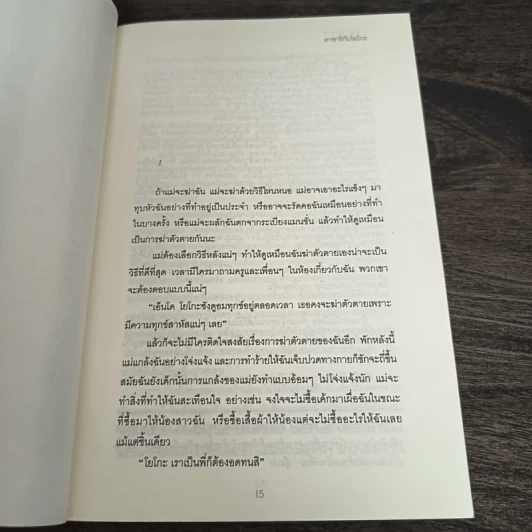 คาซาริกับโยโกะ
1
ถ้าแม่จะฆ่าฉัน แม่จะฆ่าด้วยวิธีไหนหนอ แม่อาจเอาอะไรแข็งๆ มา
ทุบหัวฉันอย่างที่ทำอยู่เป็นประจำ หรืออาจจะรัดคอฉันเหมือนอย่างที่ทำ
ในบางครั้ง หรือแม่จะผลักฉันตกจากระเบียงแมนชั่น แล้วทำให้ดูเหมือน
เป็นการฆ่าตัวตายกันนะ
แม่ต้องเลือกวิธีหลังแน่ๆ ทำให้ดูเหมือนฉันฆ่าตัวตายเองน่าจะเป็น
วิธีที่ดีที่สุด เวลามีใครมาถามครูและเพื่อนๆ ในห้องเกี่ยวกับฉัน พวกเขา
จะต้องตอบแบบนี้แน่ๆ
“เอ็นโด โยโกะซังดูอมทุกข์อยู่ตลอดเวลา เธอคงจะฆ่าตัวตายเพราะ
มีความทุกข์สาหัสแน่ๆ เลย”
แล้วก็จะไม่มีใครติดใจสงสัยเรื่องการฆ่าตัวตายของฉันอีก พักหลังนี้
แม่แกล้งฉันอย่างโจ่งแจ้ง และการทำร้ายให้ฉันเจ็บปวดทางกายก็ชักจะถี่ขึ้น
สมัยฉันยังเด็กนั้นการแกล้งของแม่ยังทำแบบอ้อมๆ ไม่โจ่งแจ้งนัก แม่จะ
ทำสิ่งที่ทำให้ฉันสะเทือนใจ อย่างเช่น จงใจจะไม่ซื้อเค้กมาเผื่อฉันในขณะ
ที่ซื้อมาให้น้องสาวฉัน หรือซื้อเสื้อผ้าให้น้องแต่จะไม่ซื้ออะไรให้ฉันเลย
แม้แต่ชิ้นเดียว
“โยโกะ เราเป็นพี่ก็ต้องอดทนสิ”
15